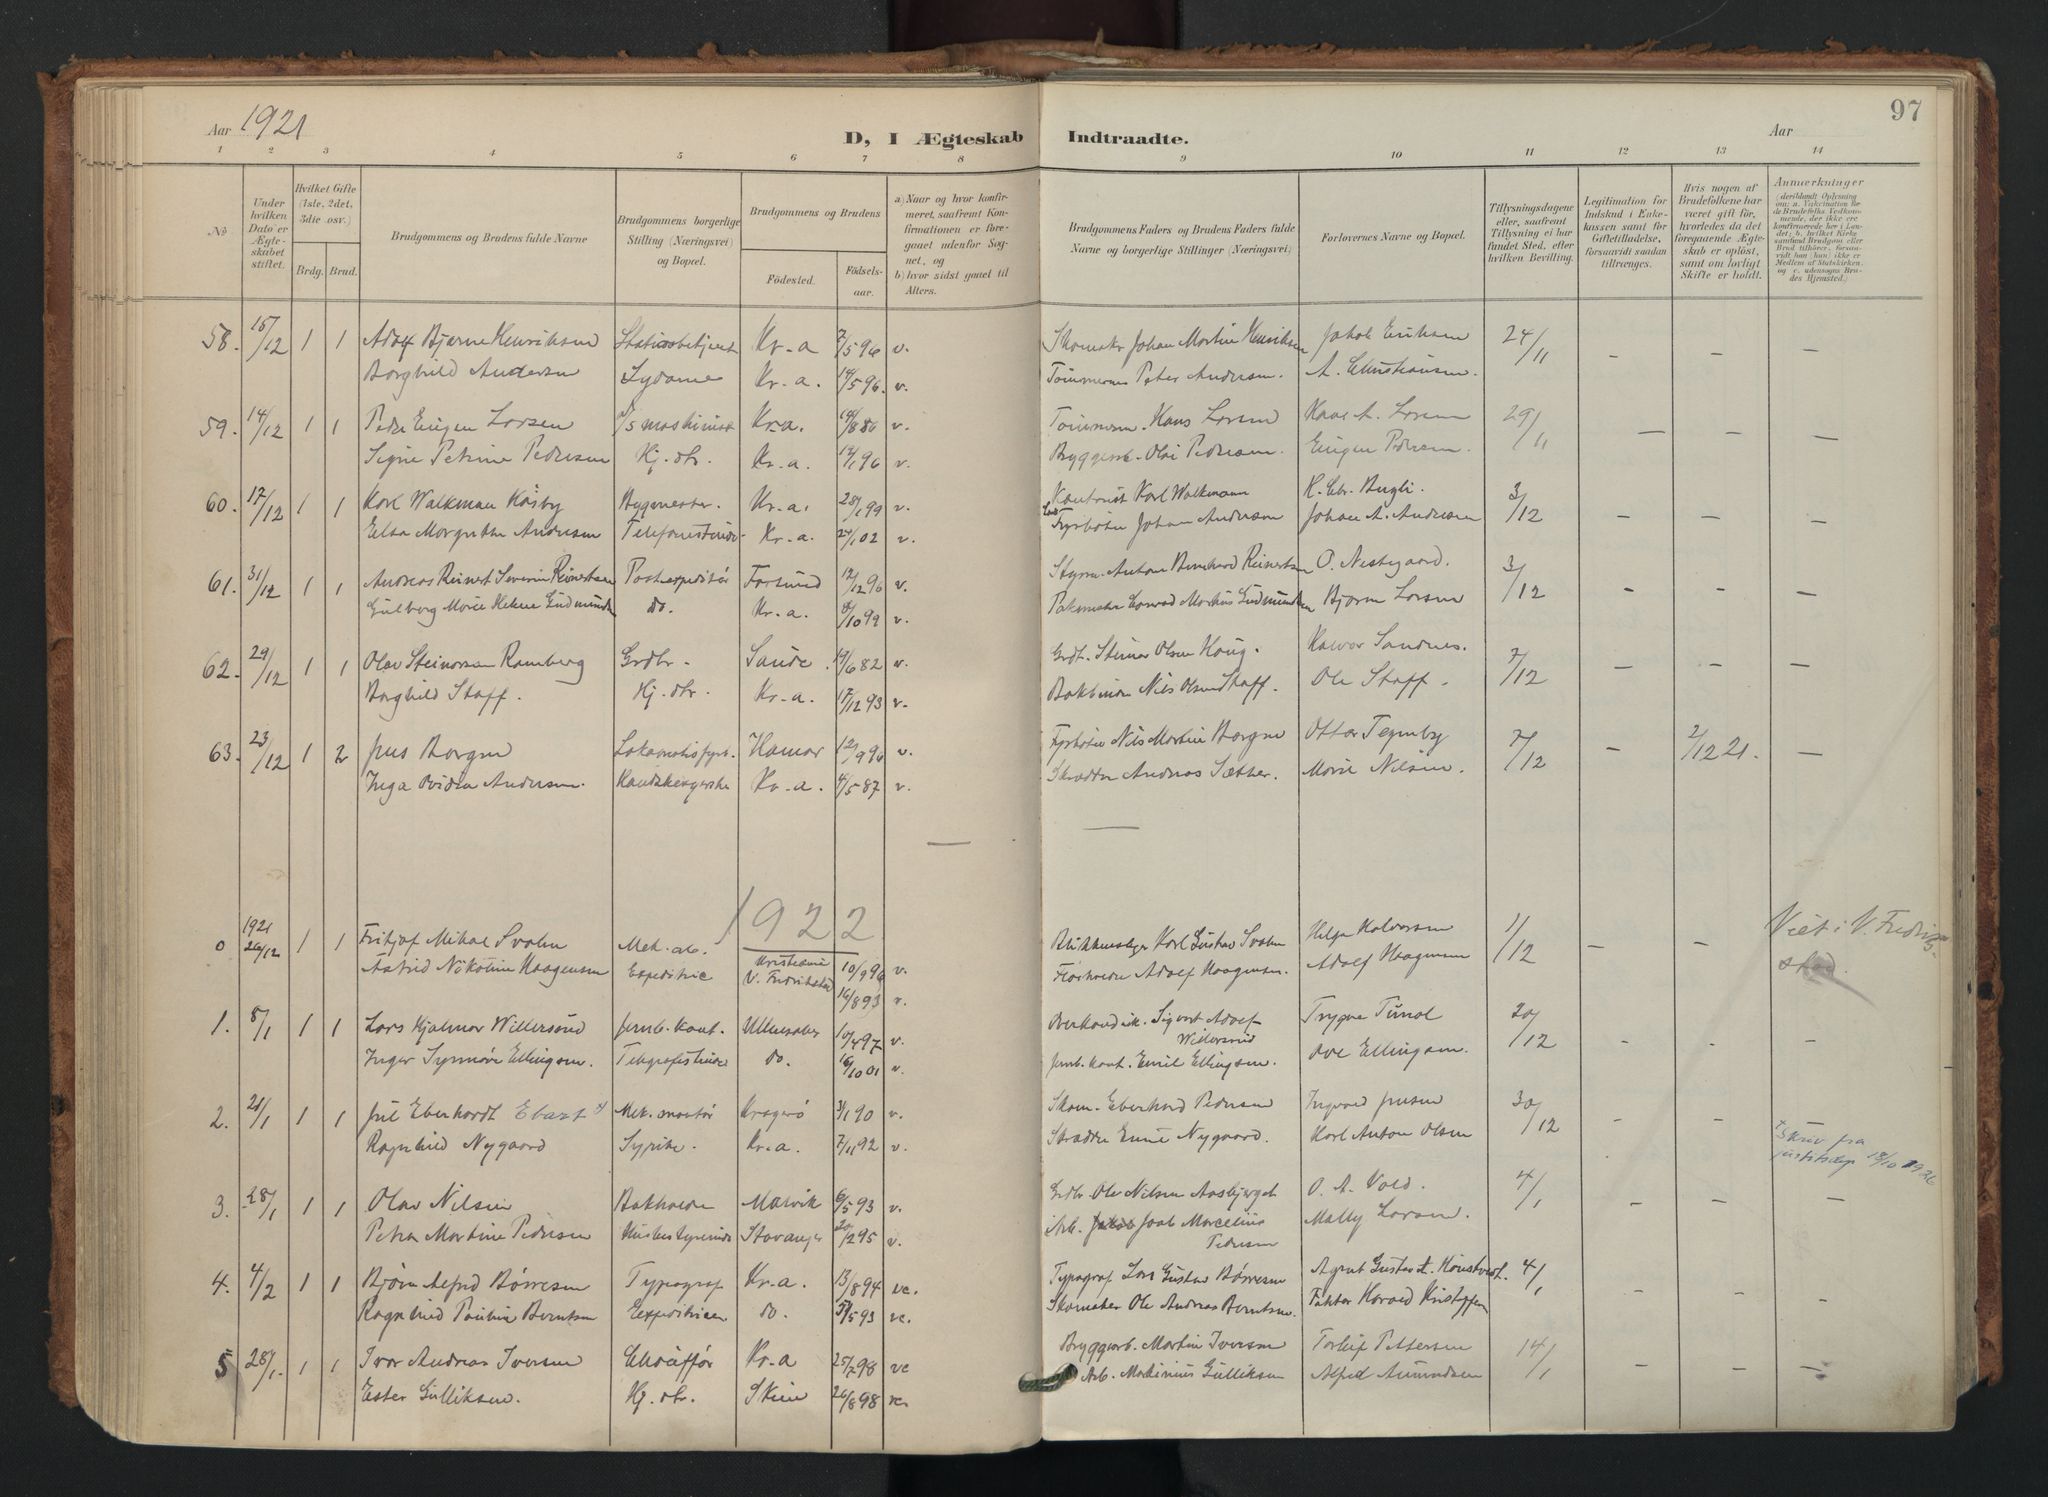 Aar 1921
D, I Ægteskab Indtraadte.
Aar
97
1 2 3 4 5 6 7 8 9 10 11 12 13 14
No
Under hvilken Dato er Ægteskabet stiftet.
Hvilket Gifte (1ste, 2det, 3die osv.)
Brdg. Brud.
Brudgommens og Brudens fulde Navne
Brudgommens borgerlige Stilling (Næringsvei) og Bopæl.
Brudgommens og Brudens
Födested.
Födsels-aar.
a) Naar og hvor konfirmeret, saafremt Konfirmationen er foregaaet udenfor Sognet, og
b) hvor sidst gaaet til Alters.
Brudgommens Faders og Brudens Faders fulde Navne og borgerlige Stillinger (Næringsvei)
Forlovernes Navne og Bopæl.
Tillysningsdagene eller, saafremt Tillysning ei har fundet Sted, efter hvilken Bevilling.
Legitimation for Indskud i Enkekassen samt for Giftetilladelse, forsaavidt saadan tiltrænges.
Hvis nogen af Brudefolkene har været gift før, hvorledes da det foregaaende Ægteskab er opløst, samt om lovligt Skifte er holdt.
Anmærkninger
58. 15/12 1 1 Adolf Bjarne Henriksen Stationsbetjent Kr-a 7/5 96 v. Skomaker Johan Martin Henriksen Jakob Eriksen 24/11 - - -
Borghild Andersen Sydame Kr-a. 14/5 96. v. Tömmerm Peter Andersen. A. Christiansen.
59. 14/12 1 1 Peder Eugen Larsen maskinist Kr-a. 14/8 86 v. Tömmerm. Hans Larsen Hans A. Larsen 29/11 - - -
Signe Petrine Pedersen Hj. dtr. Kr-a. 12/1 96 v. Byggearb. Olai Pedersen. Eugen Pedersen.
60. 17/12 1 1 Karl Walkman Käsby Bygmester. Kr-a. 28/1 99 v. Karl Walkmann H. Chr. Bugli. 3/12 - - -
Elsa Margrethe Andersen Telefonistinde Kr-a. 24/1 02 v. Fyrböter Johan Andersen Johan A. Andersen
61. 31/12 1 1 Andreas Reinert Severin Reinertsen Postexpeditör Farsund 12/12 96 v. Styrm. Anton Bernhard Reinertsen O. Nestegaard. 3/12 - - -
Gulborg Marie Helene Gudmundsen do. Kr-a. 8/10 99 v. Pakmester Conrad Markus Gudmundsen Bjarne Larsen
62. 29/12 1 1 Olav Steinarson Ramberg Grdbr. Sande 19/6 82 v. Grdb. Steinar Olsen Haug. Halvor Sandnes. 7/12 - - -
Borghild Staff. Hj. dtr. Kr-a. 17/12 93 v. Bokbinder Nils Olsen Staff. Ole Staff.
63. 23/12 1 2 Jens Borgen Lokomotivfyrb. Hamar 12/9 96 v. Fyrböter Nils Martin Borgen Ottar Tegneby 7/12 - 2/12 21. -
Inga Ovidia Andersen. Kr-a. 4/5 87 v. Skrædder Andreas Sæther. Marie Nilsen.
1922
0 1921 26/12 1 1 Fritjof Mikal Svolm Mek. arb. Kristiania 10/9 96 v. Blikkenslager Karl Gustav Svolm Helga Halvorsen 1/12 - - Viet i V. Fredrikstad.
Astrid Nikoline Haagensen Expeditrice V. Fredrikstad 16/8 93 v. Adolf Haagensen. Adolf Haagensen
1. 8/1 1 1 Lars Hjalmar Willersrud Jernb. kont. Ullensaker 10/4 97 v. Sigvart Adolf Willersrud Trygve Tunold 20/12 - - -
Inger Synnöve Ellingsen. Telegrafistinde do. 16/10 01 v. Jernb. kont. Emil Ellingsen. Ove Ellingsen.
2. 21/1 1 1 Juel Eberhardt Ebart x) Mek. montör Kragerö 3/1 90 v. Skom. Eberhard Pedersen Ingvald Jensen 30/12 - -
Ragnhild Nygaard Syerske. Kr-a. 7/11 92 v. Skrædder Nygaard. Karl Anton Olsen
x Skriv fra justitsdep 18/10 1926
3. 28/1 1 1 Olav Nilsen Bokholder Malvik 6/5 93 v. Grdbr. Ole Nilsen Aasbjerget O. A. Vold. 4/1 - - -
Petra Martine Pedersen Husbestyrerinde Stavanger 20/2 95 v. Arb. Joab Marcelius Pedersen Mally Larsen.
4. 4/2 1 1 Björn Alfred Börresen Typograf Kr-a. 13/8 94 vc. Typograf Lars Gustav Börresen Agent Gustav A. 4/1 - - -
Ragnhild Pauline Berntsen Expeditricer do. 5/5 93 vc. Skomaker Ole Andreas Berntsen. Faktor Harald Kristoffersen
5 28/1. 1 1 Ivar Andreas Iversen Chauffør Kr-a 25/2 98 vc Byggarb. Martin Iversen Torleif Pettersen 14/1 - - -
Ester Gulliksen. Hj. dtr. Skien 26/8 98 vc Arb. Martinius Gulliksen Alfred Amundsen